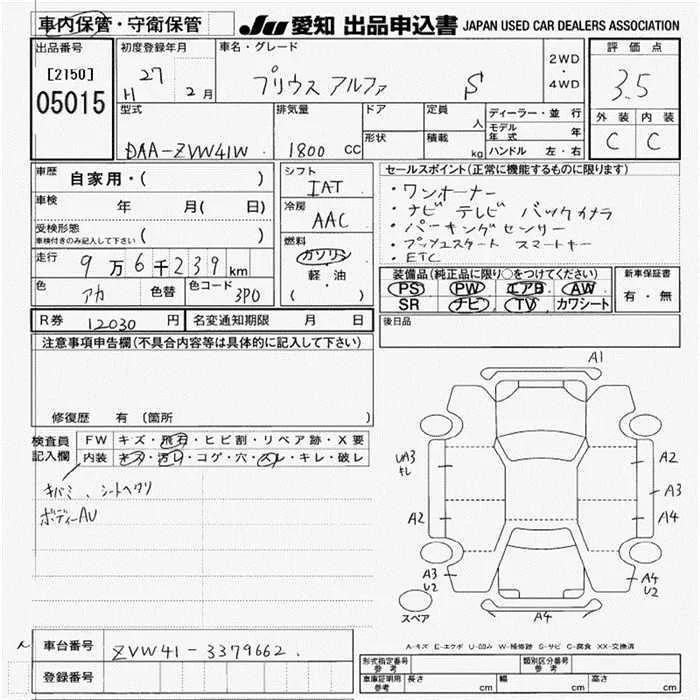 車内保管・守衛保管
JU 愛知 出品申込書 JAPAN USED CAR DEALERS ASSOCIATION
出品番号 初度登録年月 車名・グレード 2WD・4WD 評価点
[2150]
05015
H 27 2月 プリウス アルファ S 3.5
型式 排気量 ドア 定員 人 ディーラー・並行 外装 内装
形状 積載 kg モデル年式 年
DAA-ZVW41W 1800 CC ハンドル 左・右 C C
車歴 自家用・( )
車検 年 月( 日)
受検形態 ( )
車検付きのみ記入して下さい
走行 9万6千239km
色 アカ 色替 色コード 3P0
シフト IAT
冷房 AAC
燃料 ガソリン
軽・油
( )
セールスポイント(正常に機能するものに限ります)
・ワンオーナー
・ナビ テレビ バックカメラ
・パーキングセンサー
・プッシュスタート スマートキー
・ETC
装備品(純正品に限り○をつけてください) 新車保証書
PS PW エアB AW 有・無
SR ナビ TV カワシート
R券 12030 円 名変通知期限 月 日
後日品
注意事項申告欄(不具合内容等は具体的に記入して下さい)
修復歴 有 (箇所 )
検査員記入欄
FW キズ・飛石・ヒビ割・リペア跡・X要
内装 キズ・汚レ・コゲ・穴・スレ・キレ・破レ
キバミ、シートヘタリ
ボディーAU
A1
UA3 キレ A2
A3
A2 A4
A3 U2 A4 U2
スペア A4
A-キズ E-エクボ U-凹み W-補修跡 S-サビ C-腐食 XX-交換済
車台番号 ZVW41-3379662
登録番号
形式指定番号 参考 類別区分番号 参考
車庫証明用 参考 長さ cm 幅 cm 高さ cm